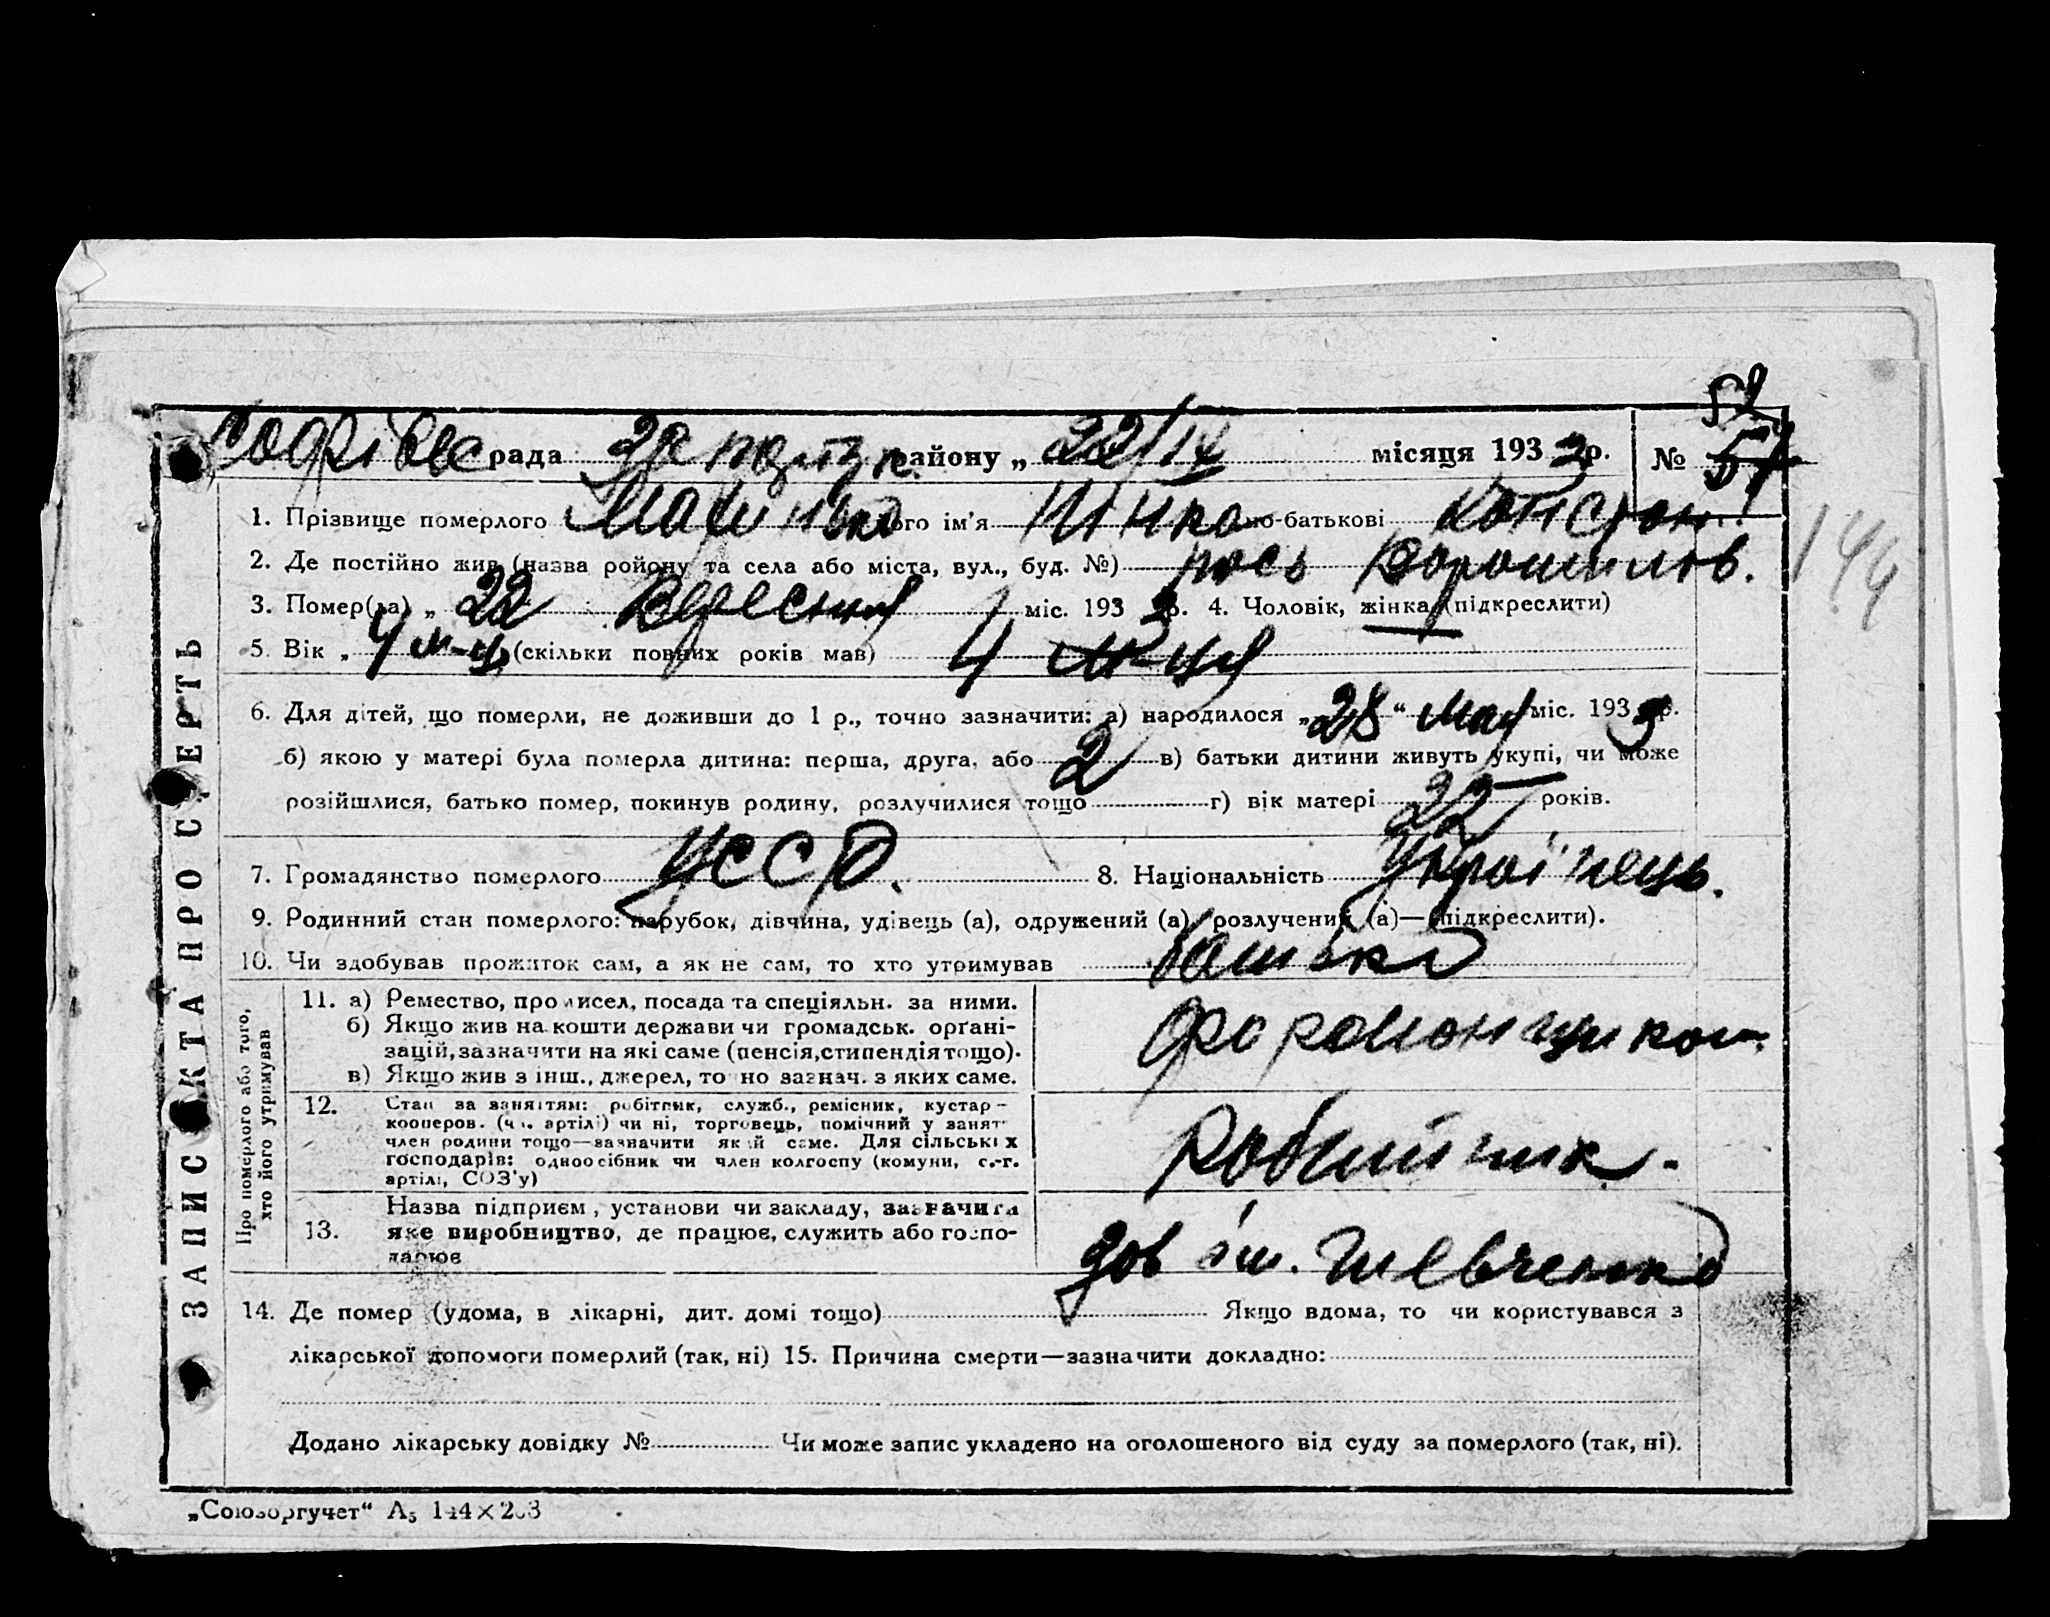 рада району „ 22/IX місяця 1933 р. № 57
58
1. Прізвище померлого його ім’я Нінка по-батькові Констан.
144
2. Де постійно жив (назва ройону та села або міста, вул., буд. №) пос Ворошилов.
3. Помер(ла) „ 22 Вересня міс. 1933 р. 4. Чоловік, жінка (підкреслити)
5. Вік „ 4 м-ц. (скільки повних років мав) 4 м-ця
6. Для дітей, що померли, не доживши до 1 р., точно зазначити: а) народилося „28“ мая міс. 1933 р.
б) якою у матері була померла дитина: перша, друга, або 2 в) батьки дитини живуть укупі, чи може
розійшлися, батько помер, покинув родину, розлучилися тощо г) вік матері 22 років.
7. Громадянство померлого УССР. 8. Національність Українець.
9. Родинний стан померлого: парубок, дівчина, удівець (а), одружений (а) розлучений (а)—(підкреслити).
10. Чи здобував прожиток сам, а як не сам, то хто утримував батько
ЗАПИСКА ПРО СМЕРТЬ
Про померлого або того, хто його утримував
11. а) Ремество, промисел, посада та спеціяльн. за ними.
б) Якщо жив на кошти держави чи громадськ. орґані-
зацій, зазначити на які саме (пенсія, стипендія тощо).
в) Якщо жив з інш., джерел, то но зазнач. з яких саме.
12. Стан за заняттям: робітник, служб., ремісник, кустар-
кооперов. (чл. артілі) чи ні, торговець, помічний у занят
член родини тощо—зазначити який саме. Для сільських
господарів: одноосібник чи член колгоспу (комуни, с.-г.
артілі, СОЗ'у)
Робітник.
13. Назва підприєм, установи чи закладу, зазначити
яке виробництво, де працює, служить або госпо-
дарює
зов ім. Шевченко
14. Де помер (удома, в лікарні, дит. домі тощо) Якщо вдома, то чи користувався з
лікарської допомоги померлий (так, ні) 15. Причина смерти—зазначити докладно:
Додано лікарську довідку № Чи може запис укладено на оголошеного від суду за померлого (так, ні).
„Союзоргучет“ А₅ 144×203